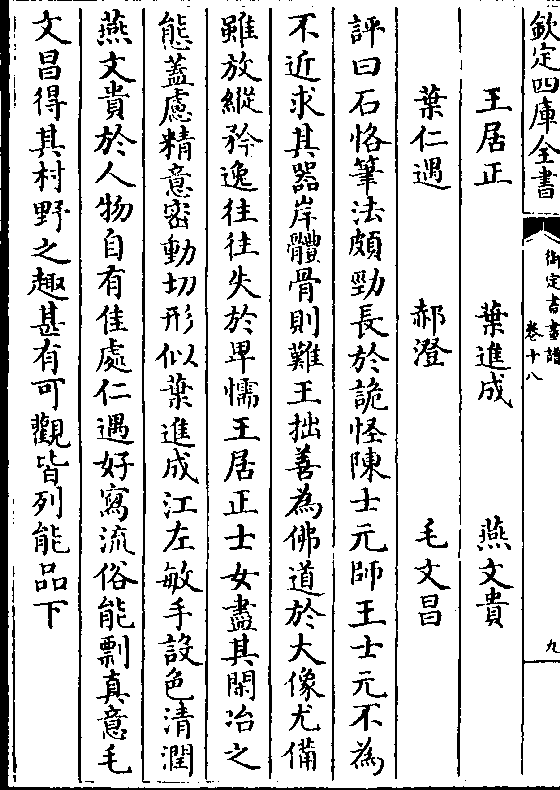 欽定四庫全書
御定書畫譜
卷十八
九
王居正 葉進成 燕文貴
葉仁遇 郝澄 毛文昌
評曰石恪筆法頗勁長於詭怪陳士元師王士元不為
不近求其器岸體骨則難王拙善為佛道於大像尤備
雖放縱矜逸往往失於卑懦王居正士女盡其閑冶之
態蓋慮精意密動切形似葉進成江左敏手設色清潤
燕文貴於人物自有佳處仁遇好寫流俗能剽真意毛
文昌得其村野之趣甚有可觀皆列能品下